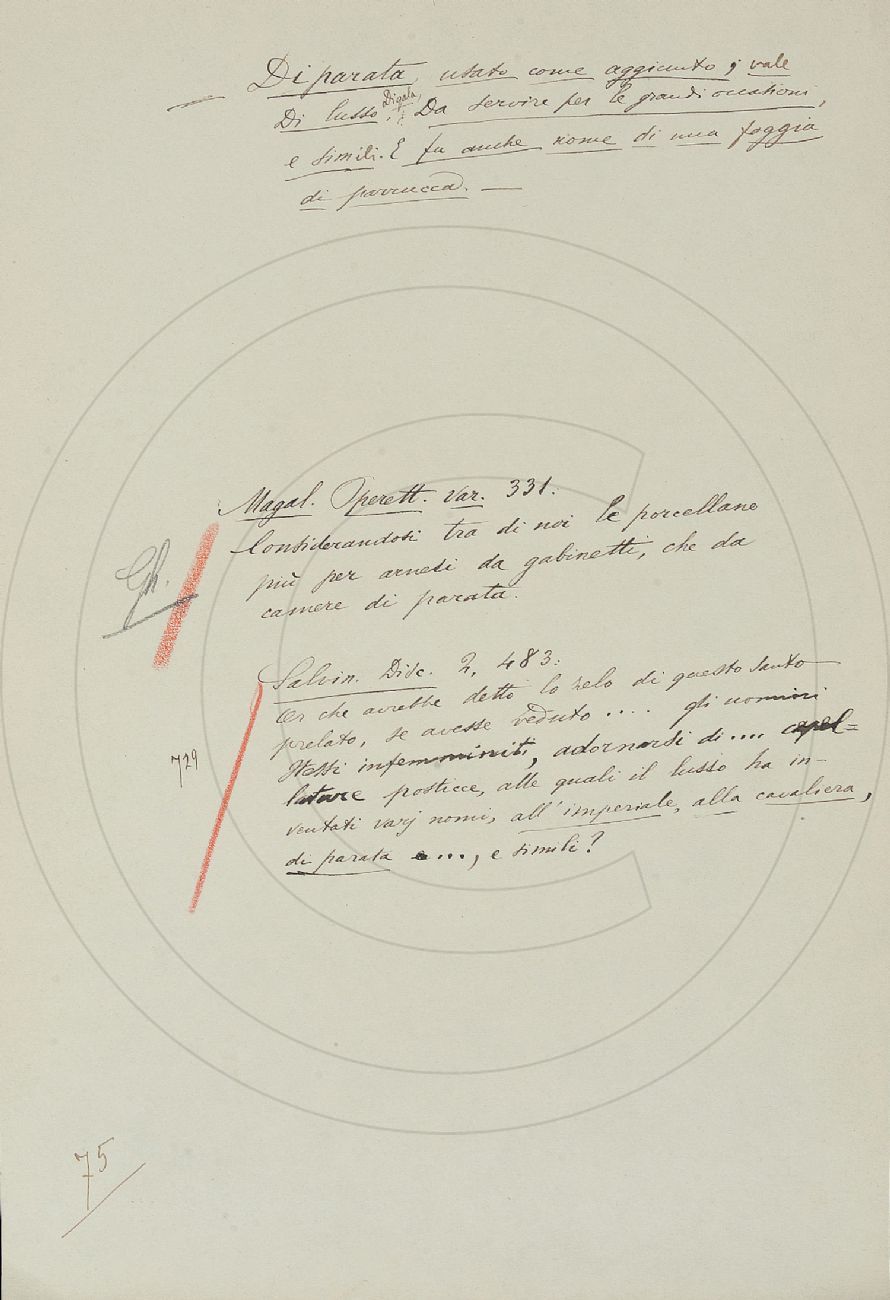 — Di parata, usato come aggiunto, vale
Di lusso, Di gala, Da servire per le grandi occasioni,
e simili. E fu anche nome di una foggia
di parrucca. —
Magal. Operett. var. 331.
Considerandosi tra di noi le porcellane
più per arnesi da gabinetti, che da
camere di parata.
Gh.
Salvin. Disc. 2, 483:
Or che avrebbe detto lo zelo di questo santo
prelato, se avesse veduto .... gli uomini
stessi infemminiti, adornarsi di .... capel=
lature posticce, alle quali il lusso ha in-
ventati varj nomi, all'imperiale, alla cavaliera,
di parata e..., e simili?
729
75